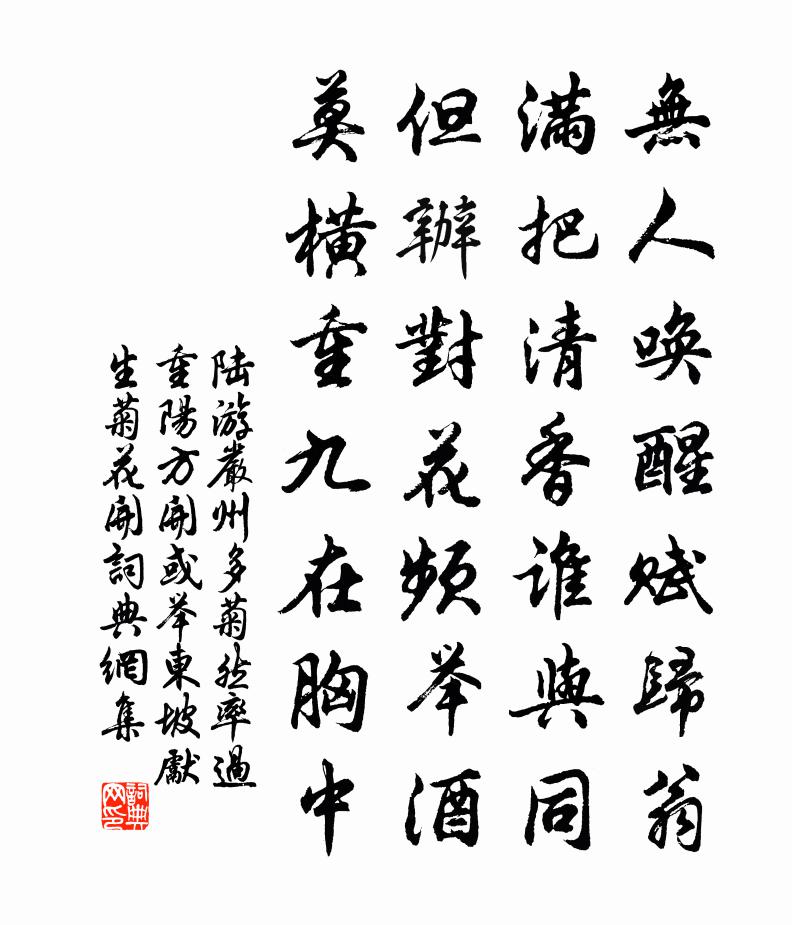 無人唤醒赋歸翁
滿把清香誰與同
但辦對花頻举酒
莫橫重九在胸中
陆游嚴州多菊然率過
重陽方開或举東坡獻
生菊花開詞典網集
詞典
网印